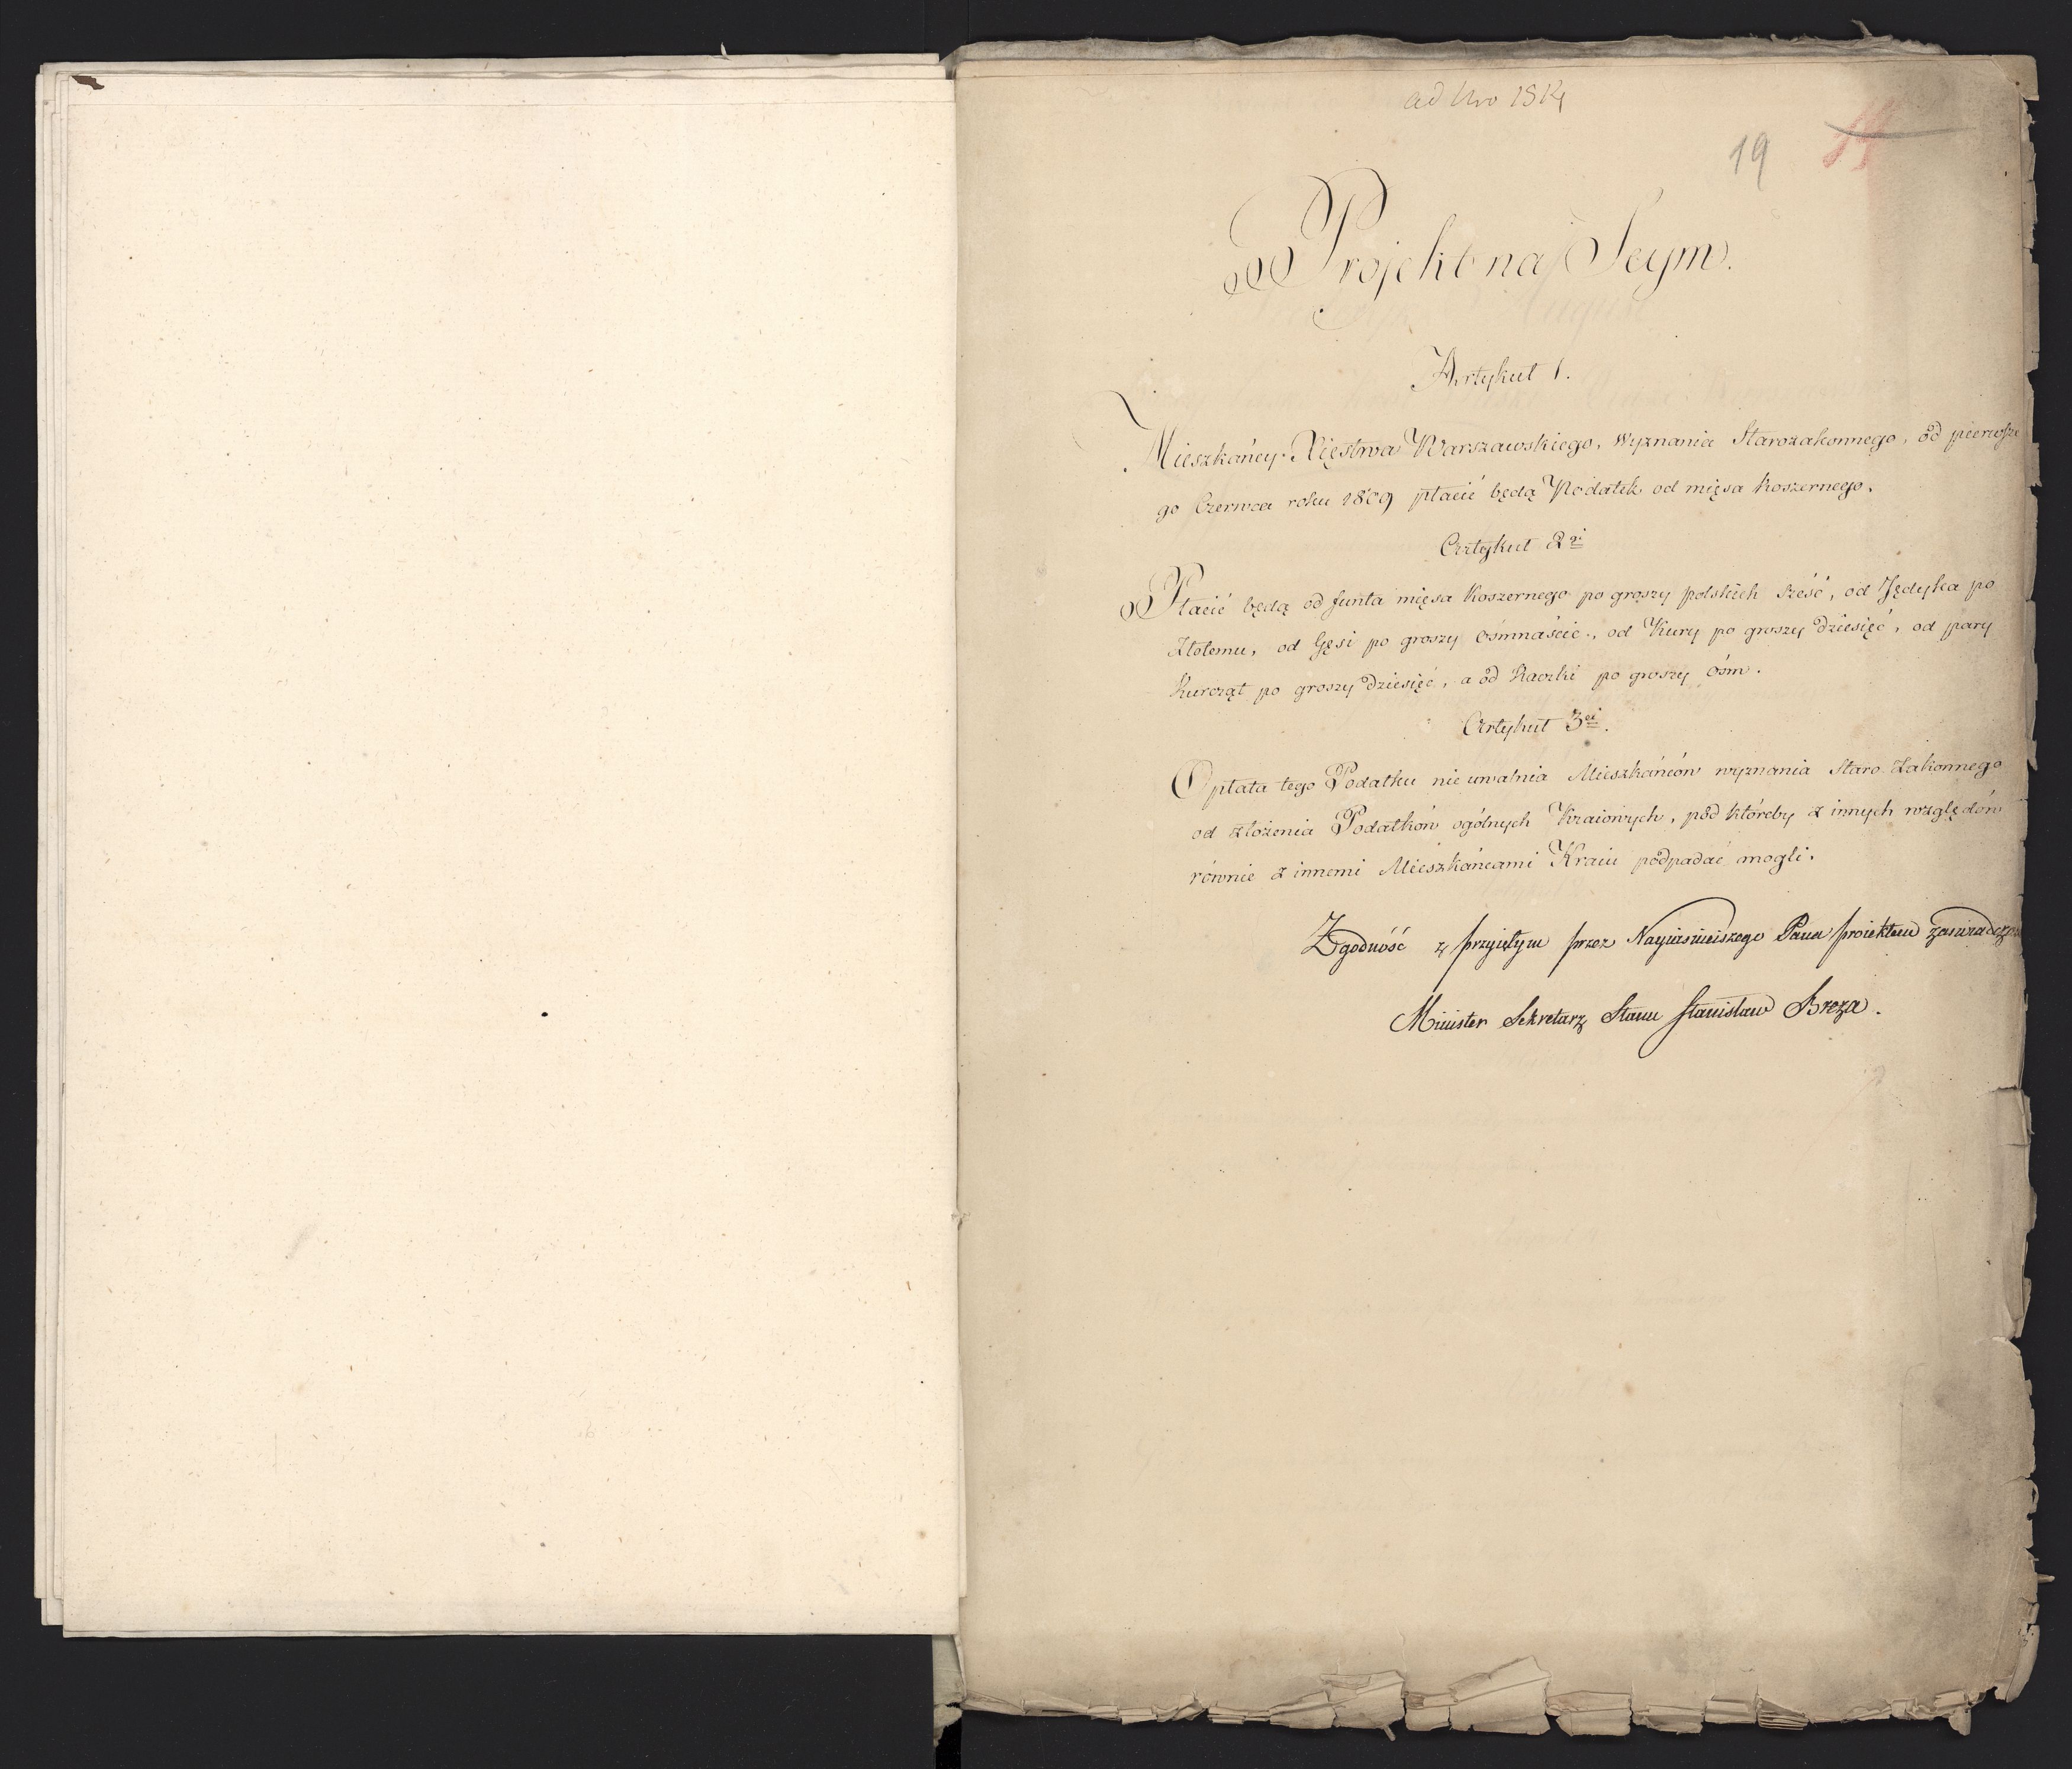 ad Nro 1814
19
Projekt na Seym.
Artykuł 1.
Mieszkańcy Xięstwa Warszawskiego, wyznania Starozakonnego, od pierwsze
go Czerwca roku 1809 płacić będą Podatek od mięsa koszernego.
Artykuł 2gi
Płacić będą od funta mięsa Koszernego po groszy polskich sześć, od Jędyka po
Złotemu, od Gęsi po groszy ośmnaście, od Kury po groszy dziesięć, od pary
Kurcząt po groszy dziesięć, a od Kaczki po groszy ośm.
Artykuł 3ci.
Opłata tego Podatku nie uwalnia Mieszkańców wyznania Staro Zakonnego
od złożenia Podatków ogólnych Kraiowych, pod któreby z innych względów
równie z innemi Mieszkańcami Kraiu podpadać mogli.
Zgodność z przyiętym przez Nayiaśnieiszego Pana proiektem zaświadczam
Minister Sekretarz Stanu Stanisław Breza.